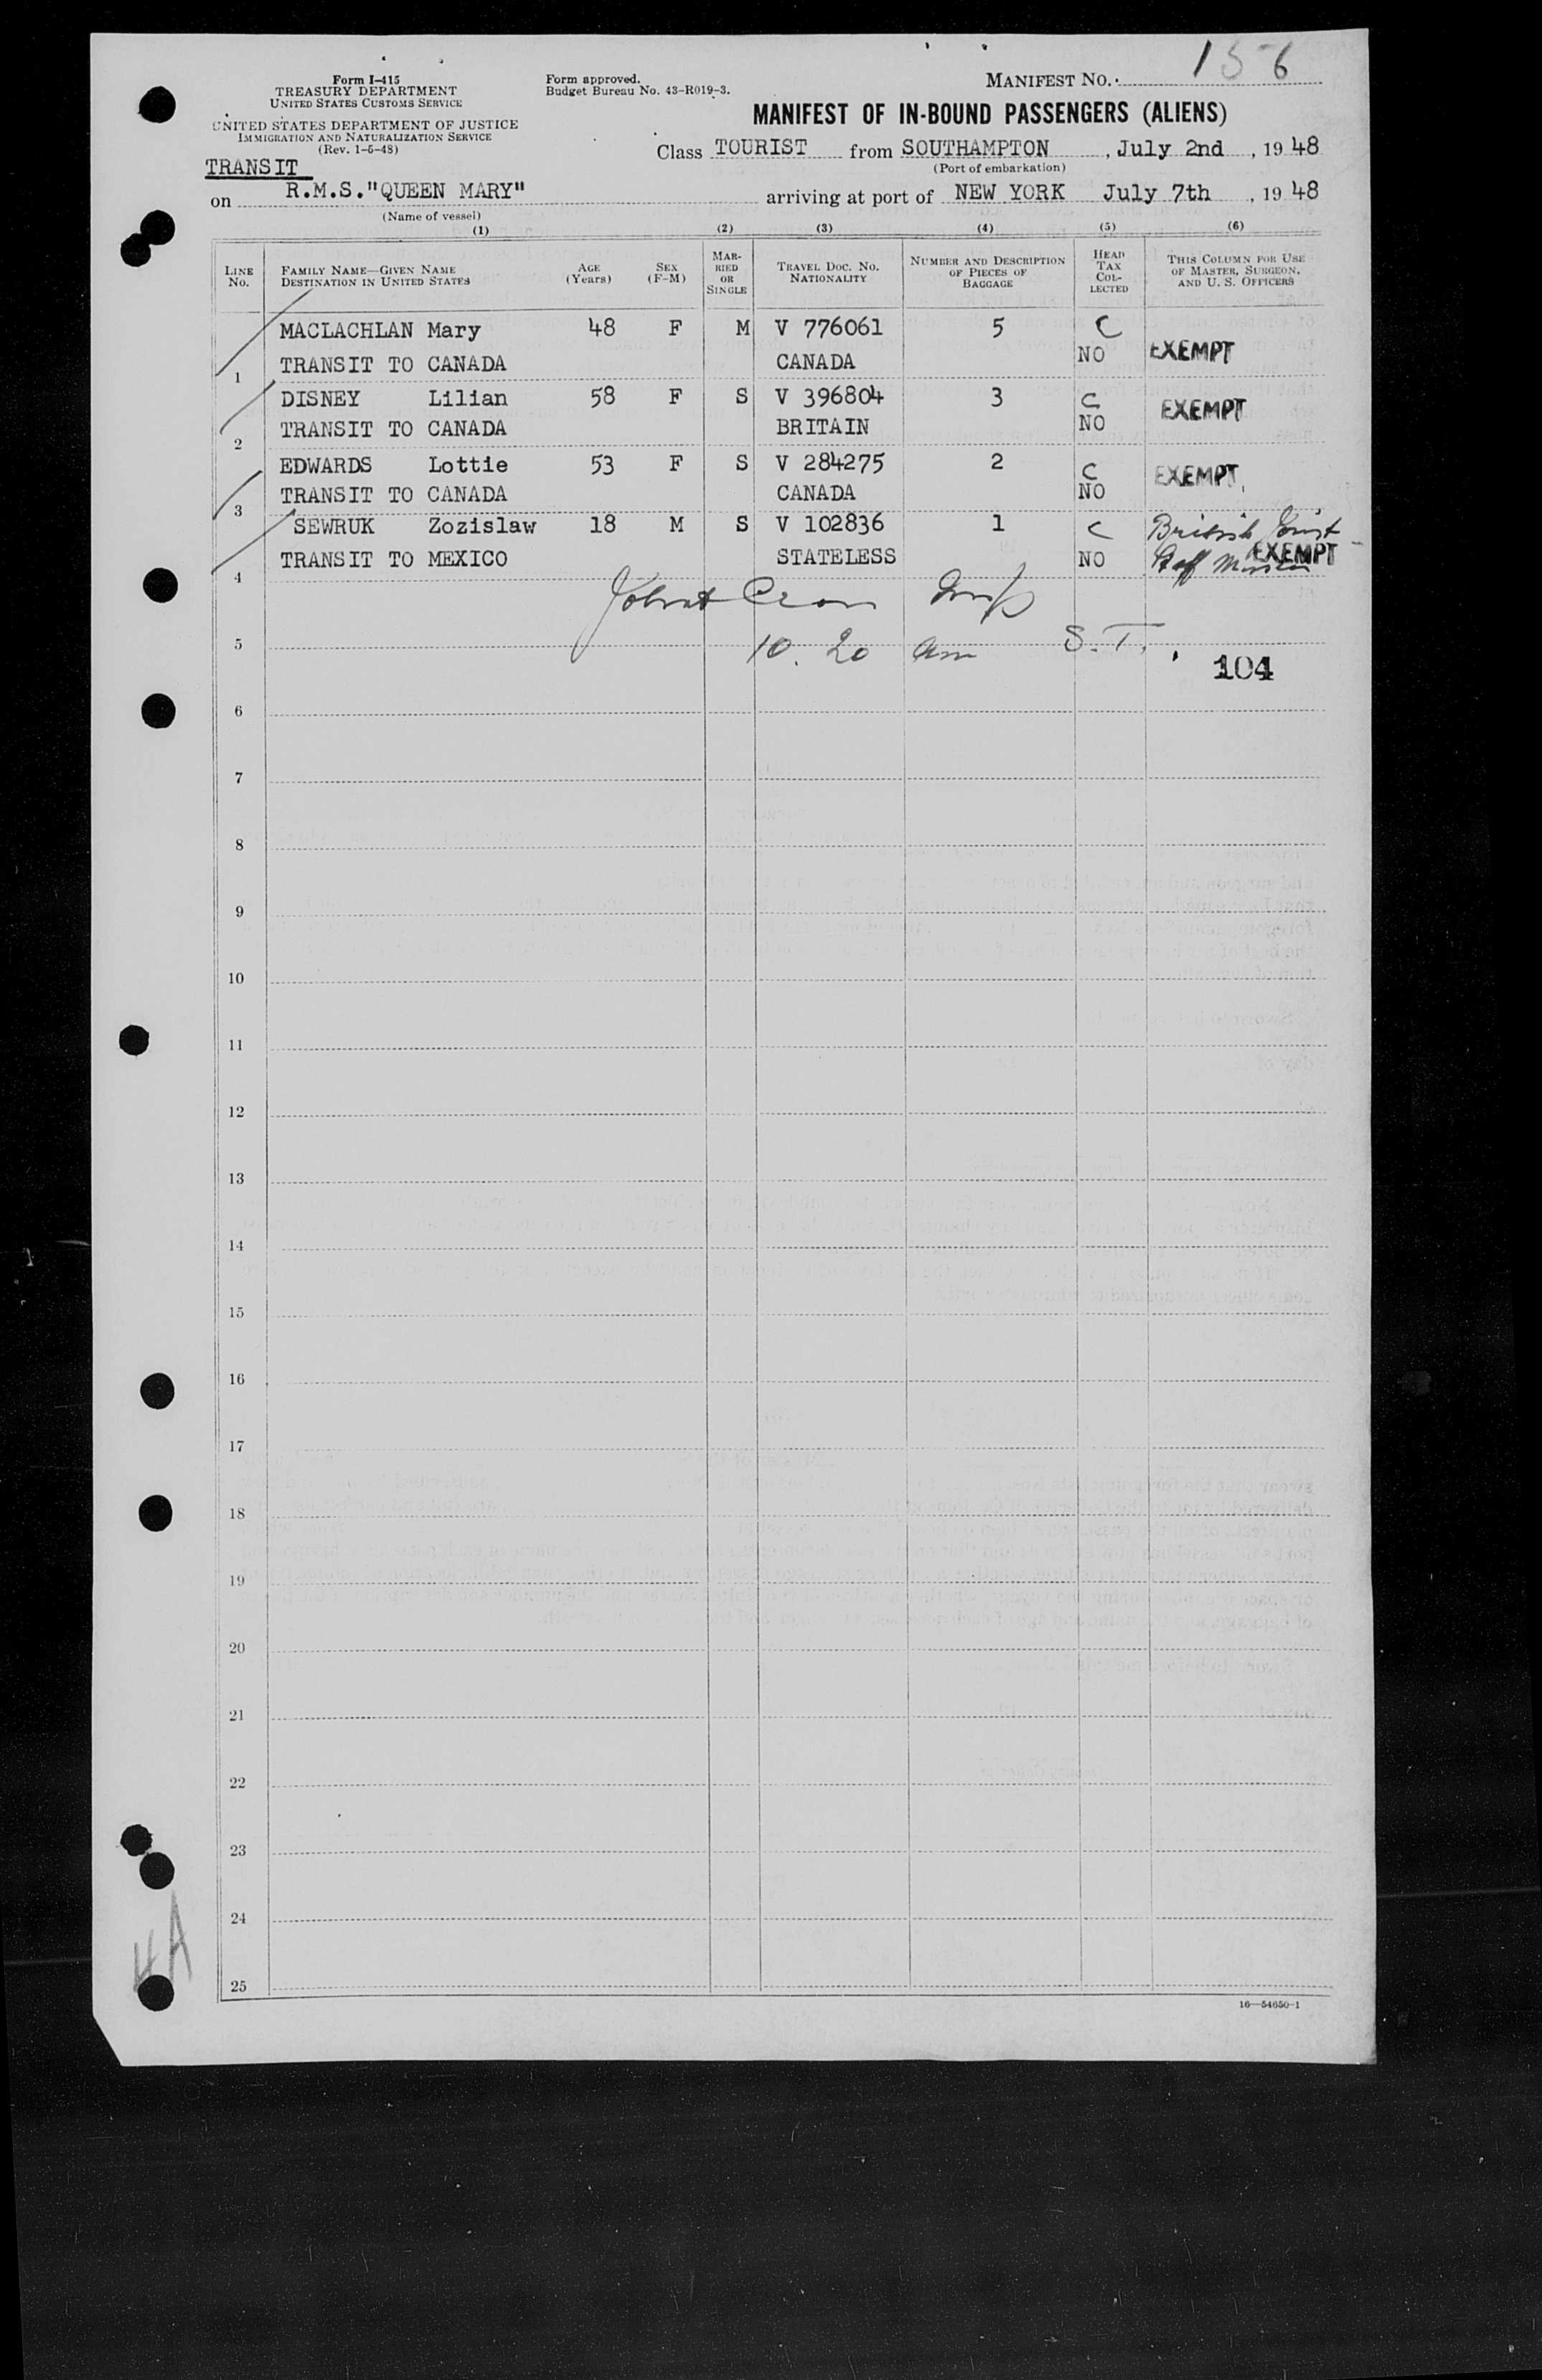 Form I-415
TREASURY DEPARTMENT
UNITED STATES CUSTOMS SERVICE
UNITED STATES DEPARTMENT OF JUSTICE
IMMIGRATION AND NATURALIZATION SERVICE
(Rev. 1-5-48)
Form approved.
Budget Bureau No. 43-R019-3.
MANIFEST NO. 156
MANIFEST OF IN-BOUND PASSENGERS (ALIENS)
Class TOURIST from SOUTHAMPTON, July 2nd, 19 48
(Port of embarkation)
TRANSIT
on R.M.S."QUEEN MARY" arriving at port of NEW YORK July 7th, 19 48
(Name of vessel)
(1) (2) (3) (4) (5) (6)
LINE No. FAMILY NAME—GIVEN NAME DESTINATION IN UNITED STATES AGE (Years) SEX (F-M) MARRIED OR SINGLE TRAVEL DOC. NO. NATIONALITY NUMBER AND DESCRIPTION OF PIECES OF BAGGAGE HEAD TAX COLLECTED THIS COLUMN FOR USE OF MASTER, SURGEON, AND U. S. OFFICERS
MACLACHLAN Mary 48 F M V 776061 5 C
1 TRANSIT TO CANADA CANADA NO EXEMPT
DISNEY Lilian 58 F S V 396804 3 C EXEMPT
2 TRANSIT TO CANADA BRITAIN NO
EDWARDS Lottie 53 F S V 284275 2 C EXEMPT
3 TRANSIT TO CANADA CANADA NO
SEWRUK Zozislaw 18 M S V 102836 1 C British
4 TRANSIT TO MEXICO STATELESS NO Staff EXEMPT
Insp
5 10.20 am S.T.
104
6
7
8
9
10
11
12
13
14
15
16
17
18
19
20
21
22
23
24
4A
25
16—54650-1